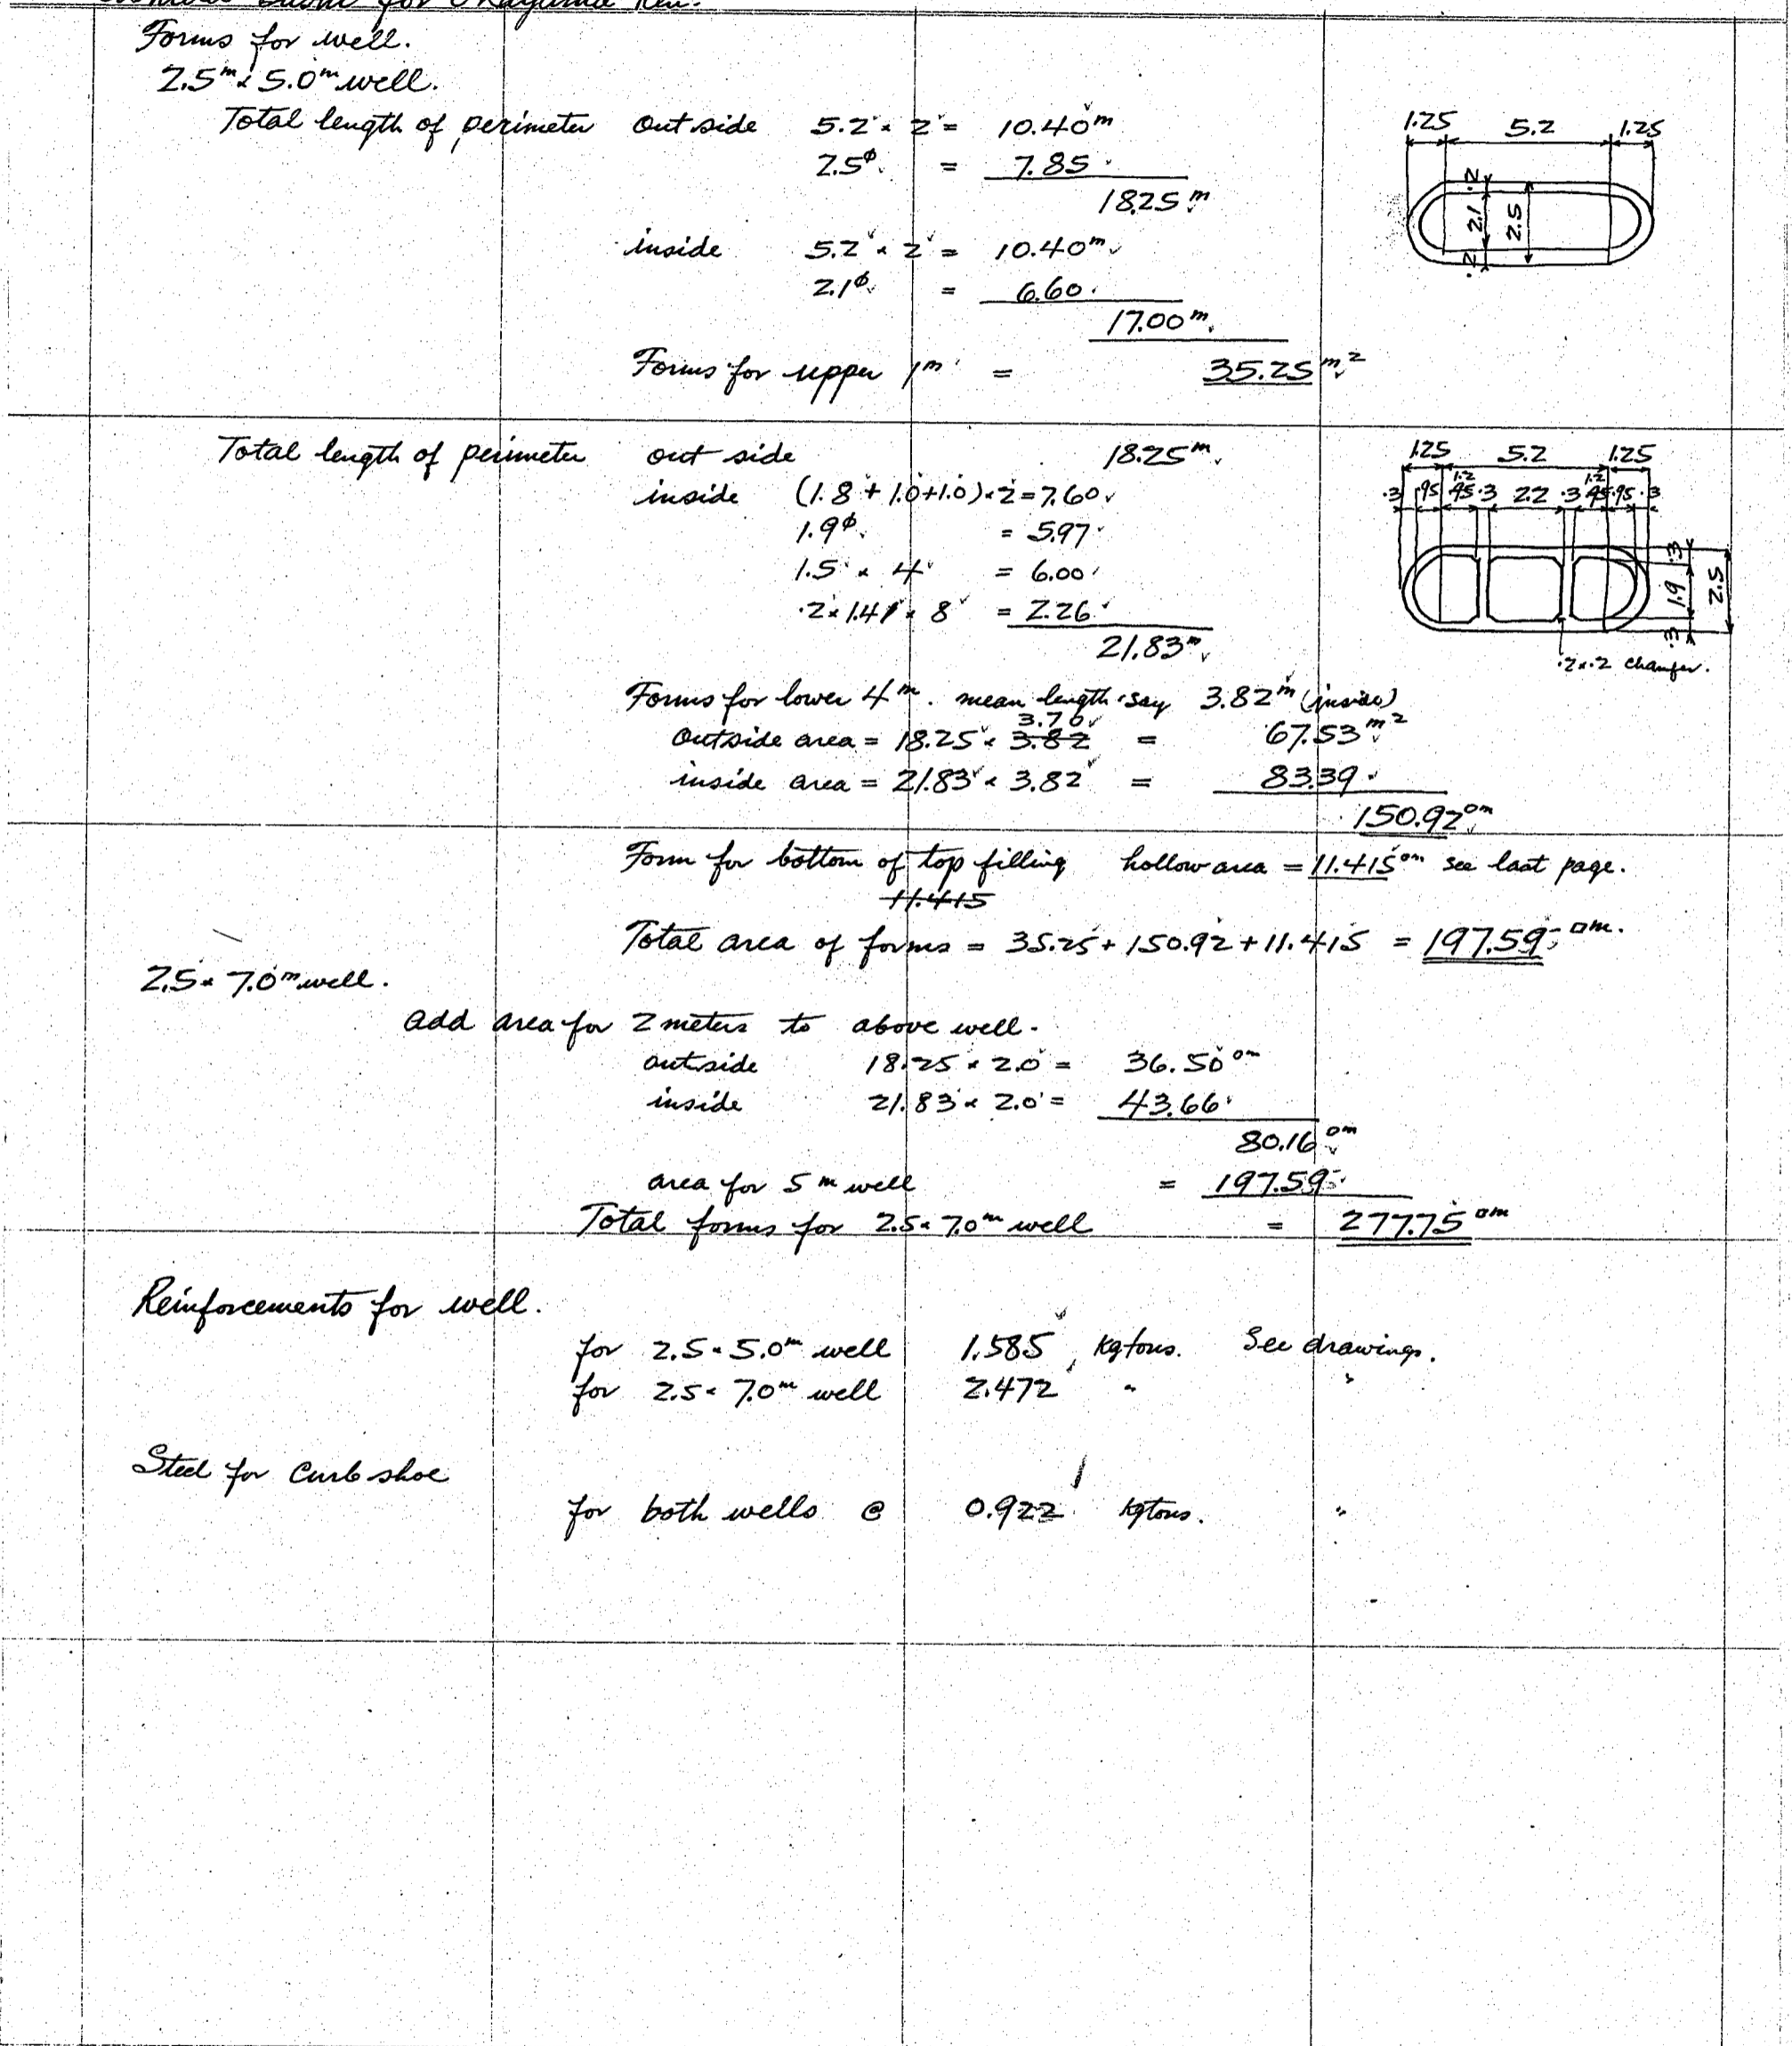 for Okayama Ken.
Forms for well.
2.5m x 5.0m well.
Total length of perimeter out side 5.2 x 2 = 10.40m
2.5φ = 7.85
18.25m
inside 5.2 x 2 = 10.40m
2.1φ = 6.60
17.00m
Forms for upper 1m = 35.25m²
1.25 5.2 1.25
.2
2.1 2.5
.2
Total length of perimeter out side 18.25m
inside (1.8+1.0+1.0)x2=7.60
1.9φ = 5.97
1.5 x 4 = 6.00
.2x1.41x8 = 2.26
21.83m
1.25 5.2 1.25
1.2 1.2
.3 .95 .45 .3 2.2 .3 .45 .95 .3
.3
1.9 2.5
.3
.2x.2 chamfer.
Forms for lower 4m. mean length say 3.82m (inside)
3.70
outside area = 18.25 x 3.82 = 67.53m²
inside area = 21.83 x 3.82 = 83.39
150.92□m
Form for bottom of top filling hollow area = 11.415□m see last page.
11.415
Total area of forms = 35.25+150.92+11.415 = 197.59□m.
2.5x7.0m well.
add area for 2 meters to above well.
outside 18.25 x 2.0 = 36.50□m
inside 21.83 x 2.0 = 43.66
80.16□m
area for 5m well = 197.59
Total forms for 2.5x7.0m well = 277.75□m
Reinforcements for well.
for 2.5x5.0m well 1.585 kgtons. See drawings.
for 2.5x7.0m well 2.472 " "
Steel for Curb shoe
for both wells @ 0.922 kgtons. "